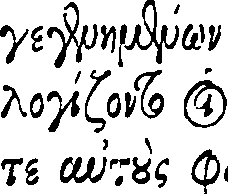 γεγενημένων
λογίζοντο
τε αὐτοὺς φ